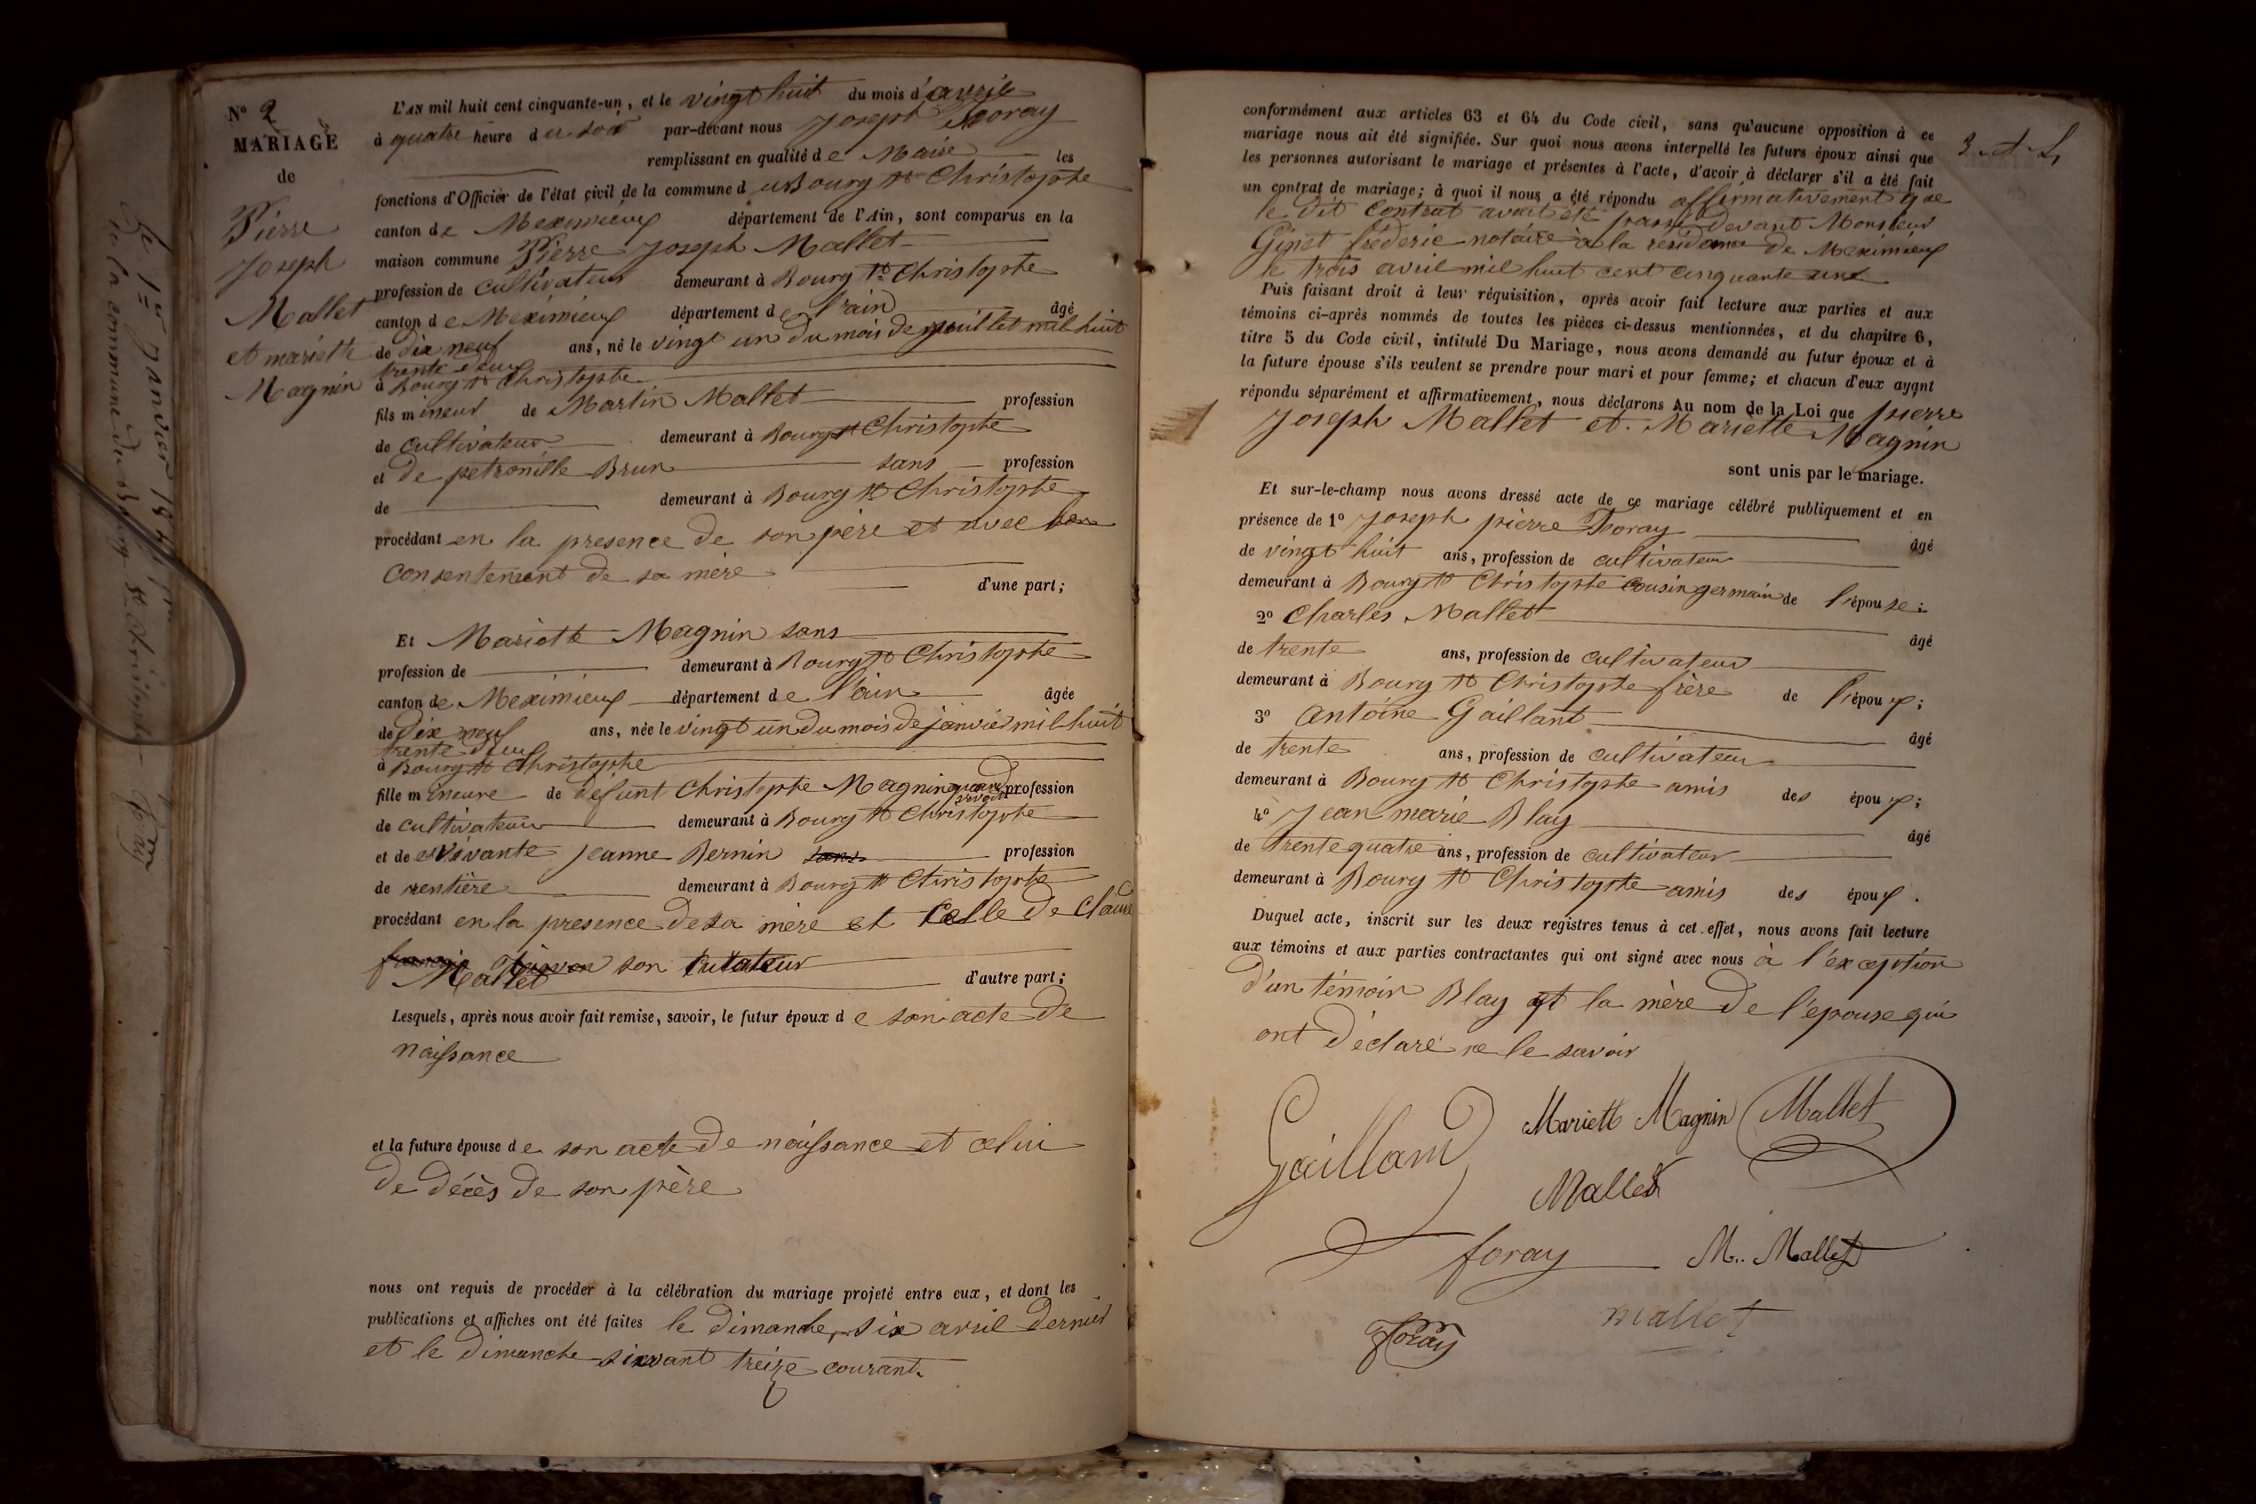 N° 2
MARIAGE
de
Pierre
Joseph
Mallet
et mariette
Magnin
L'AN mil huit cent cinquante-un, et le vingt huit du mois d'avril
à quatre heure du soir par-devant nous Joseph Foray
remplissant en qualité de Maire les
fonctions d'Officier de l'état civil de la commune du Bourg St Christophe
canton de Meximieux département de l'Ain, sont comparus en la
maison commune Pierre Joseph Mallet
profession de cultivateur demeurant à Bourg St Christophe
canton de Meximieux département de l'ain âgé
de dix neuf ans, né le vingt un du mois de juillet mil huit
trente deux
à Bourg St Christophe
fils mineur de Martin Mallet profession
de cultivateur demeurant à Bourg St Christophe
et de petronille Brun sans profession
de demeurant à Bourg St Christophe
procédant en la presence de son père et avec
consentement de sa mère d'une part;
Et Mariette Magnin sans
profession de demeurant à Bourg St Christophe
canton de Meximieux département de l'ain âgée
de dix neuf ans, née le vingt un du mois de janvier mil huit
trente deux
à Bourg St Christophe
fille mineure de defunt Christophe Magnin quand vivait profession
de cultivateur demeurant à Bourg St Christophe
et de vivante Jeanne Bernin sans profession
de rentière demeurant à Bourg St Christophe
procédant en la presence de sa mère et celle de Claude
son tutateur
Mallet d'autre part;
Lesquels, après nous avoir fait remise, savoir, le futur époux de son acte de
naissance
et la future épouse de son acte de naissance et celui
de décès de son père
nous ont requis de procéder à la célébration du mariage projeté entre eux, et dont les
publications et affiches ont été faites le dimanche six avril dernier
et le dimanche suivant treize courant.
3 A L
conformément aux articles 63 et 64 du Code civil, sans qu'aucune opposition à ce
mariage nous ait été signifiée. Sur quoi nous avons interpellé les futurs époux ainsi que
les personnes autorisant le mariage et présentes à l'acte, d'avoir à déclarer s'il a été fait
un contrat de mariage; à quoi il nous a été répondu affirmativement que
le dit contrat avait été passé devant Monsieur
Ginet fréderic notaire à la résidance de Meximieux
le trois avril mil huit cent cinquante un
Puis faisant droit à leur réquisition, après avoir fait lecture aux parties et aux
témoins ci-après nommés de toutes les pièces ci-dessus mentionnées, et du chapitre 6,
titre 5 du Code civil, intitulé Du Mariage, nous avons demandé au futur époux et à
la future épouse s'ils veulent se prendre pour mari et pour femme; et chacun d'eux ayant
répondu séparément et affirmativement, nous déclarons Au nom de la Loi que pierre
Joseph Mallet et Mariette Magnin
sont unis par le mariage.
Et sur-le-champ nous avons dressé acte de ce mariage célébré publiquement et en
présence de 1° Joseph pierre Foray âgé
de vingt huit ans, profession de cultivateur
demeurant à Bourg St Christophe cousin germain de l'épouse;
2° Charles Mallet âgé
de trente ans, profession de cultivateur
demeurant à Bourg St Christophe frère de l'époux;
3° Antoine Gaillant âgé
de trente ans, profession de cultivateur
demeurant à Bourg St Christophe amis des époux;
4° Jean marie Blay âgé
de trente quatre ans, profession de cultivateur
demeurant à Bourg St Christophe amis des époux.
Duquel acte, inscrit sur les deux registres tenus à cet effet, nous avons fait lecture
aux témoins et aux parties contractantes qui ont signé avec nous à l'exception
d'un témoin Blay et la mère de l'épouse qui
ont déclaré ne le savoir
Gaillard
Mariette Magnin
Mallet
Mallet
foray
M. Mallet
mallet
foray